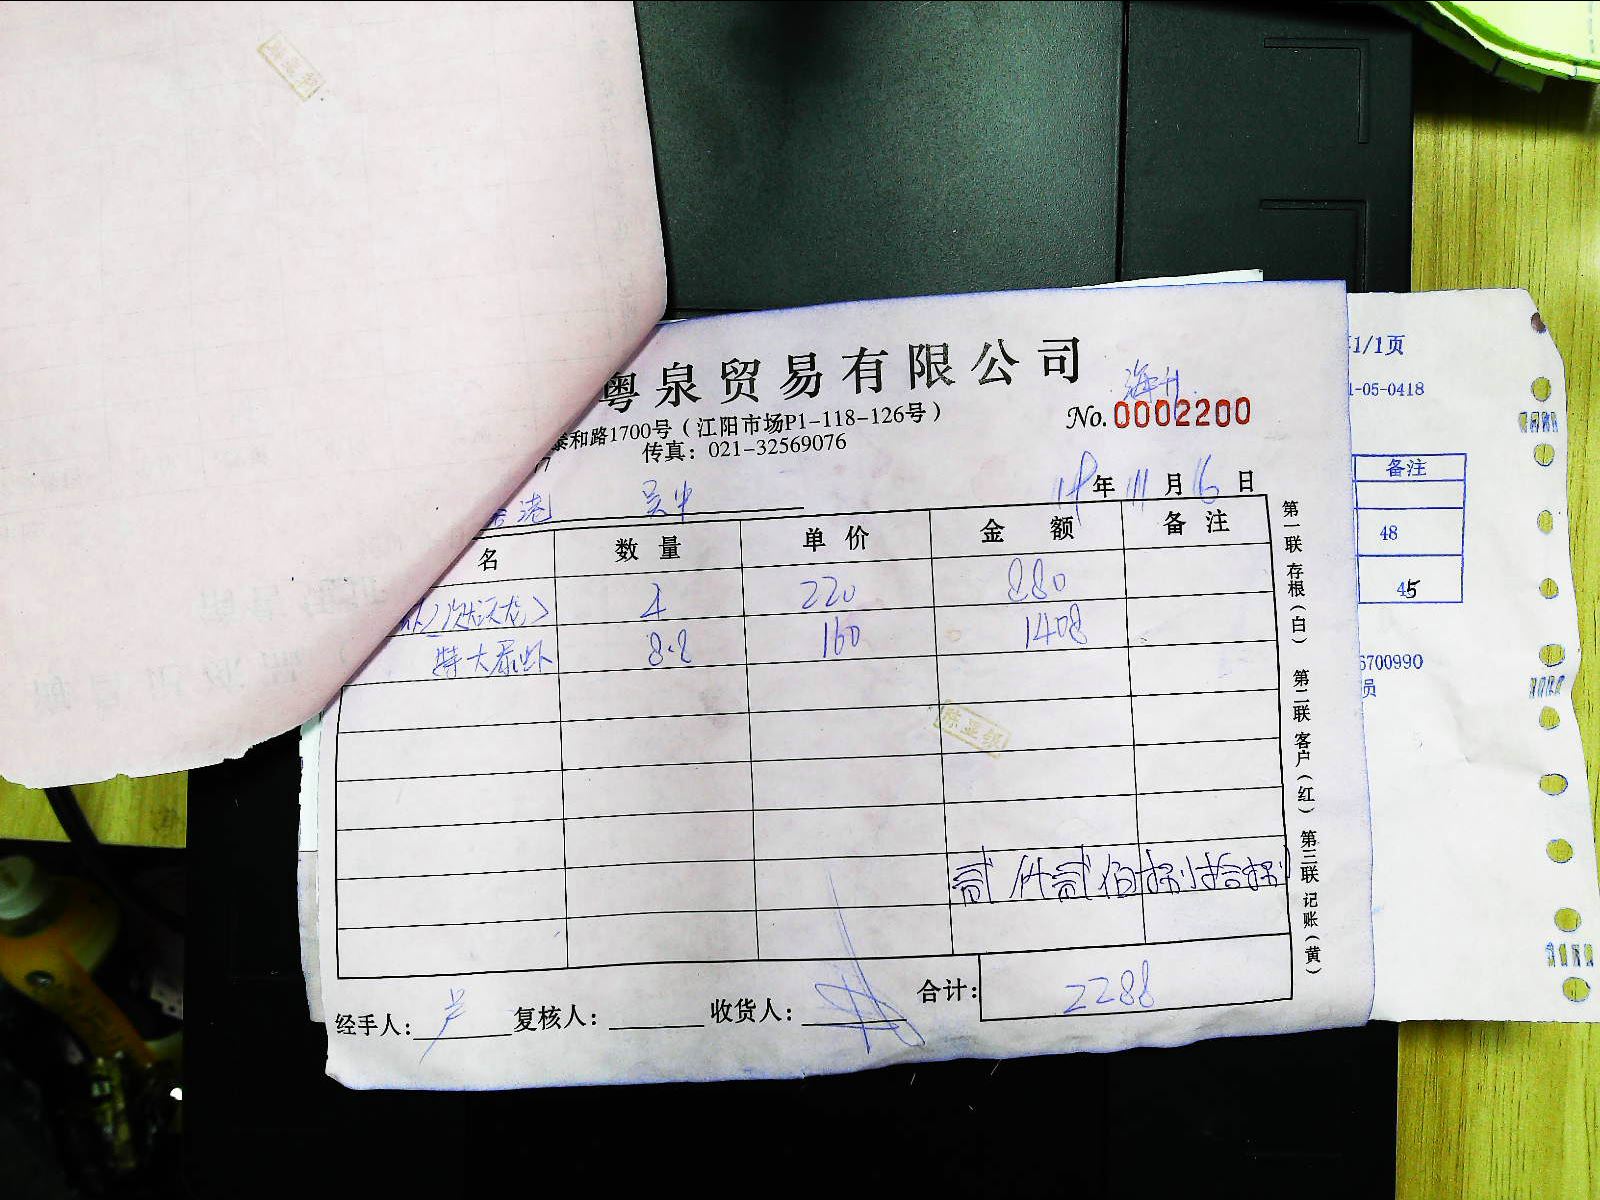 粤泉贸易有限公司
海叶
泰和路1700号（江阳市场P1-118-126号）
No. 0002200
传真：021-32569076
港 吴中
年 11 月 16 日
名 数量 单价 金额 备注
4 220 880
特大 虾 8.8 160 1408
贰仟贰佰捌拾捌
合计： 2288
经手人： 复核人： 收货人：
第一联 存根（白） 第二联 客户（红） 第三联 记账（黄）
陈亚银
1/1页
1-05-0418
备注
48
45
6700990
员